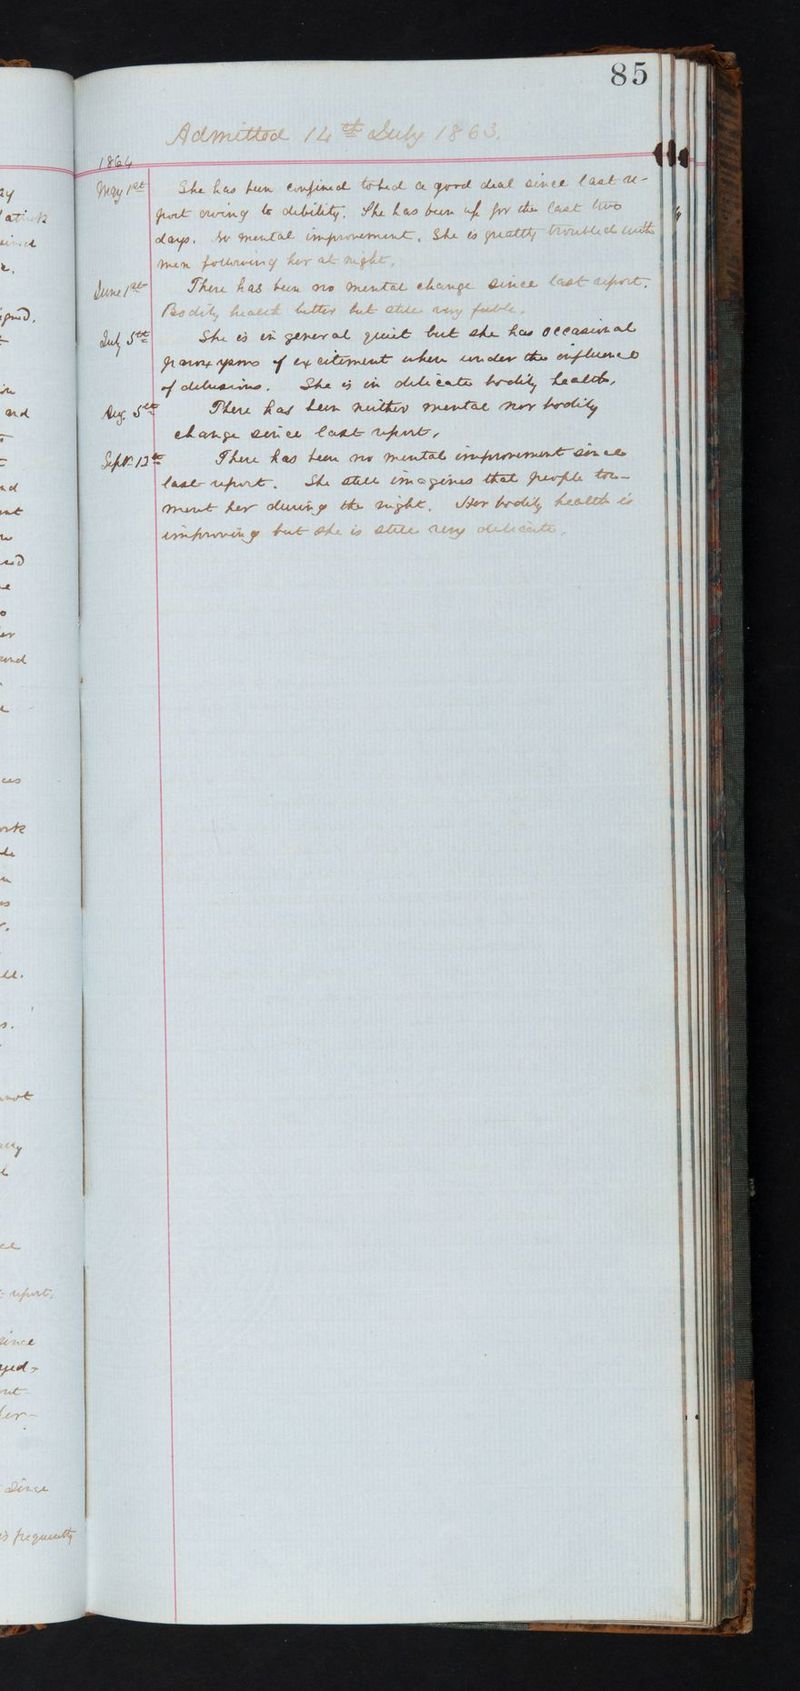 85
Admitted 14th July 1863.
1864
May 1st She has been confined to bed a good deal since last re-
port owing to debility. She has been up for the last two
days. No mental improvement. She is greatly troubled with
men following her at night.
June 1st There has been no mental change since last report.
Bodily health better but still very feeble.
July 5th She is in general quiet but she has occasional
paroxysms of excitement when under the influence
of delusions. She is in delicate bodily health.
Aug. 5th There has been neither mental nor bodily
change since last report.
Sept. 13th There has been no mental improvement since
last report. She still imagines that people tor-
ment her during the night. Her bodily health is
improving but she is still very delicate.
and
not
report,
since
since
frequently